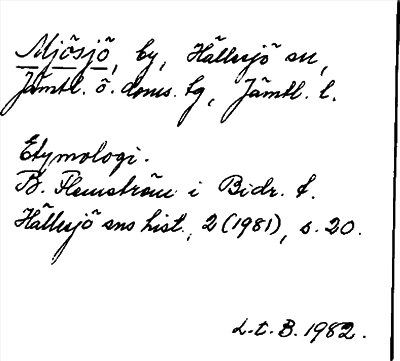 Mjösjö, by, Hällesjö sn,
Jämtl. ö. doms. tg, Jämtl. l.
Etymologi.
B. Flemström i Bidr. t.
Hällesjö sns hist., 2 (1981), s. 20.
L.t.B. 1982.